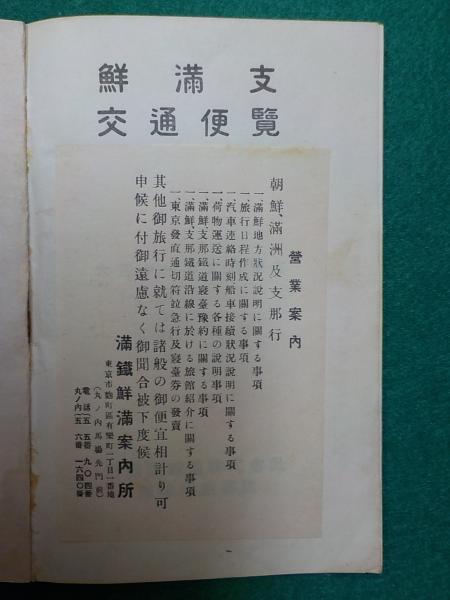 鮮滿支
交通便覽
營業案内
朝鮮、滿洲及支那行
一、滿鮮地方狀況說明に關する事項
一、旅行日程作成に關する事項
一、汽車連絡時刻船車接續狀況說明に關する事項
一、荷物運送に關する各種の說明事項
一、滿鮮、支那鐵道寢臺豫約に關する事項
一、滿鮮、支那鐵道沿線に於ける旅館紹介に關する事項
一、東京發直通切符竝急行及寢臺券の發賣
其他御旅行に就ては諸般の御便宜相計り可
申候に付御遠慮なく御聞合被下度候
滿鐵鮮滿案内所
東京市麴町區有樂町一丁目一番地
(丸ノ内馬場先門前)
電話 五五番 九〇四番
丸ノ内 五六番 一六四〇番